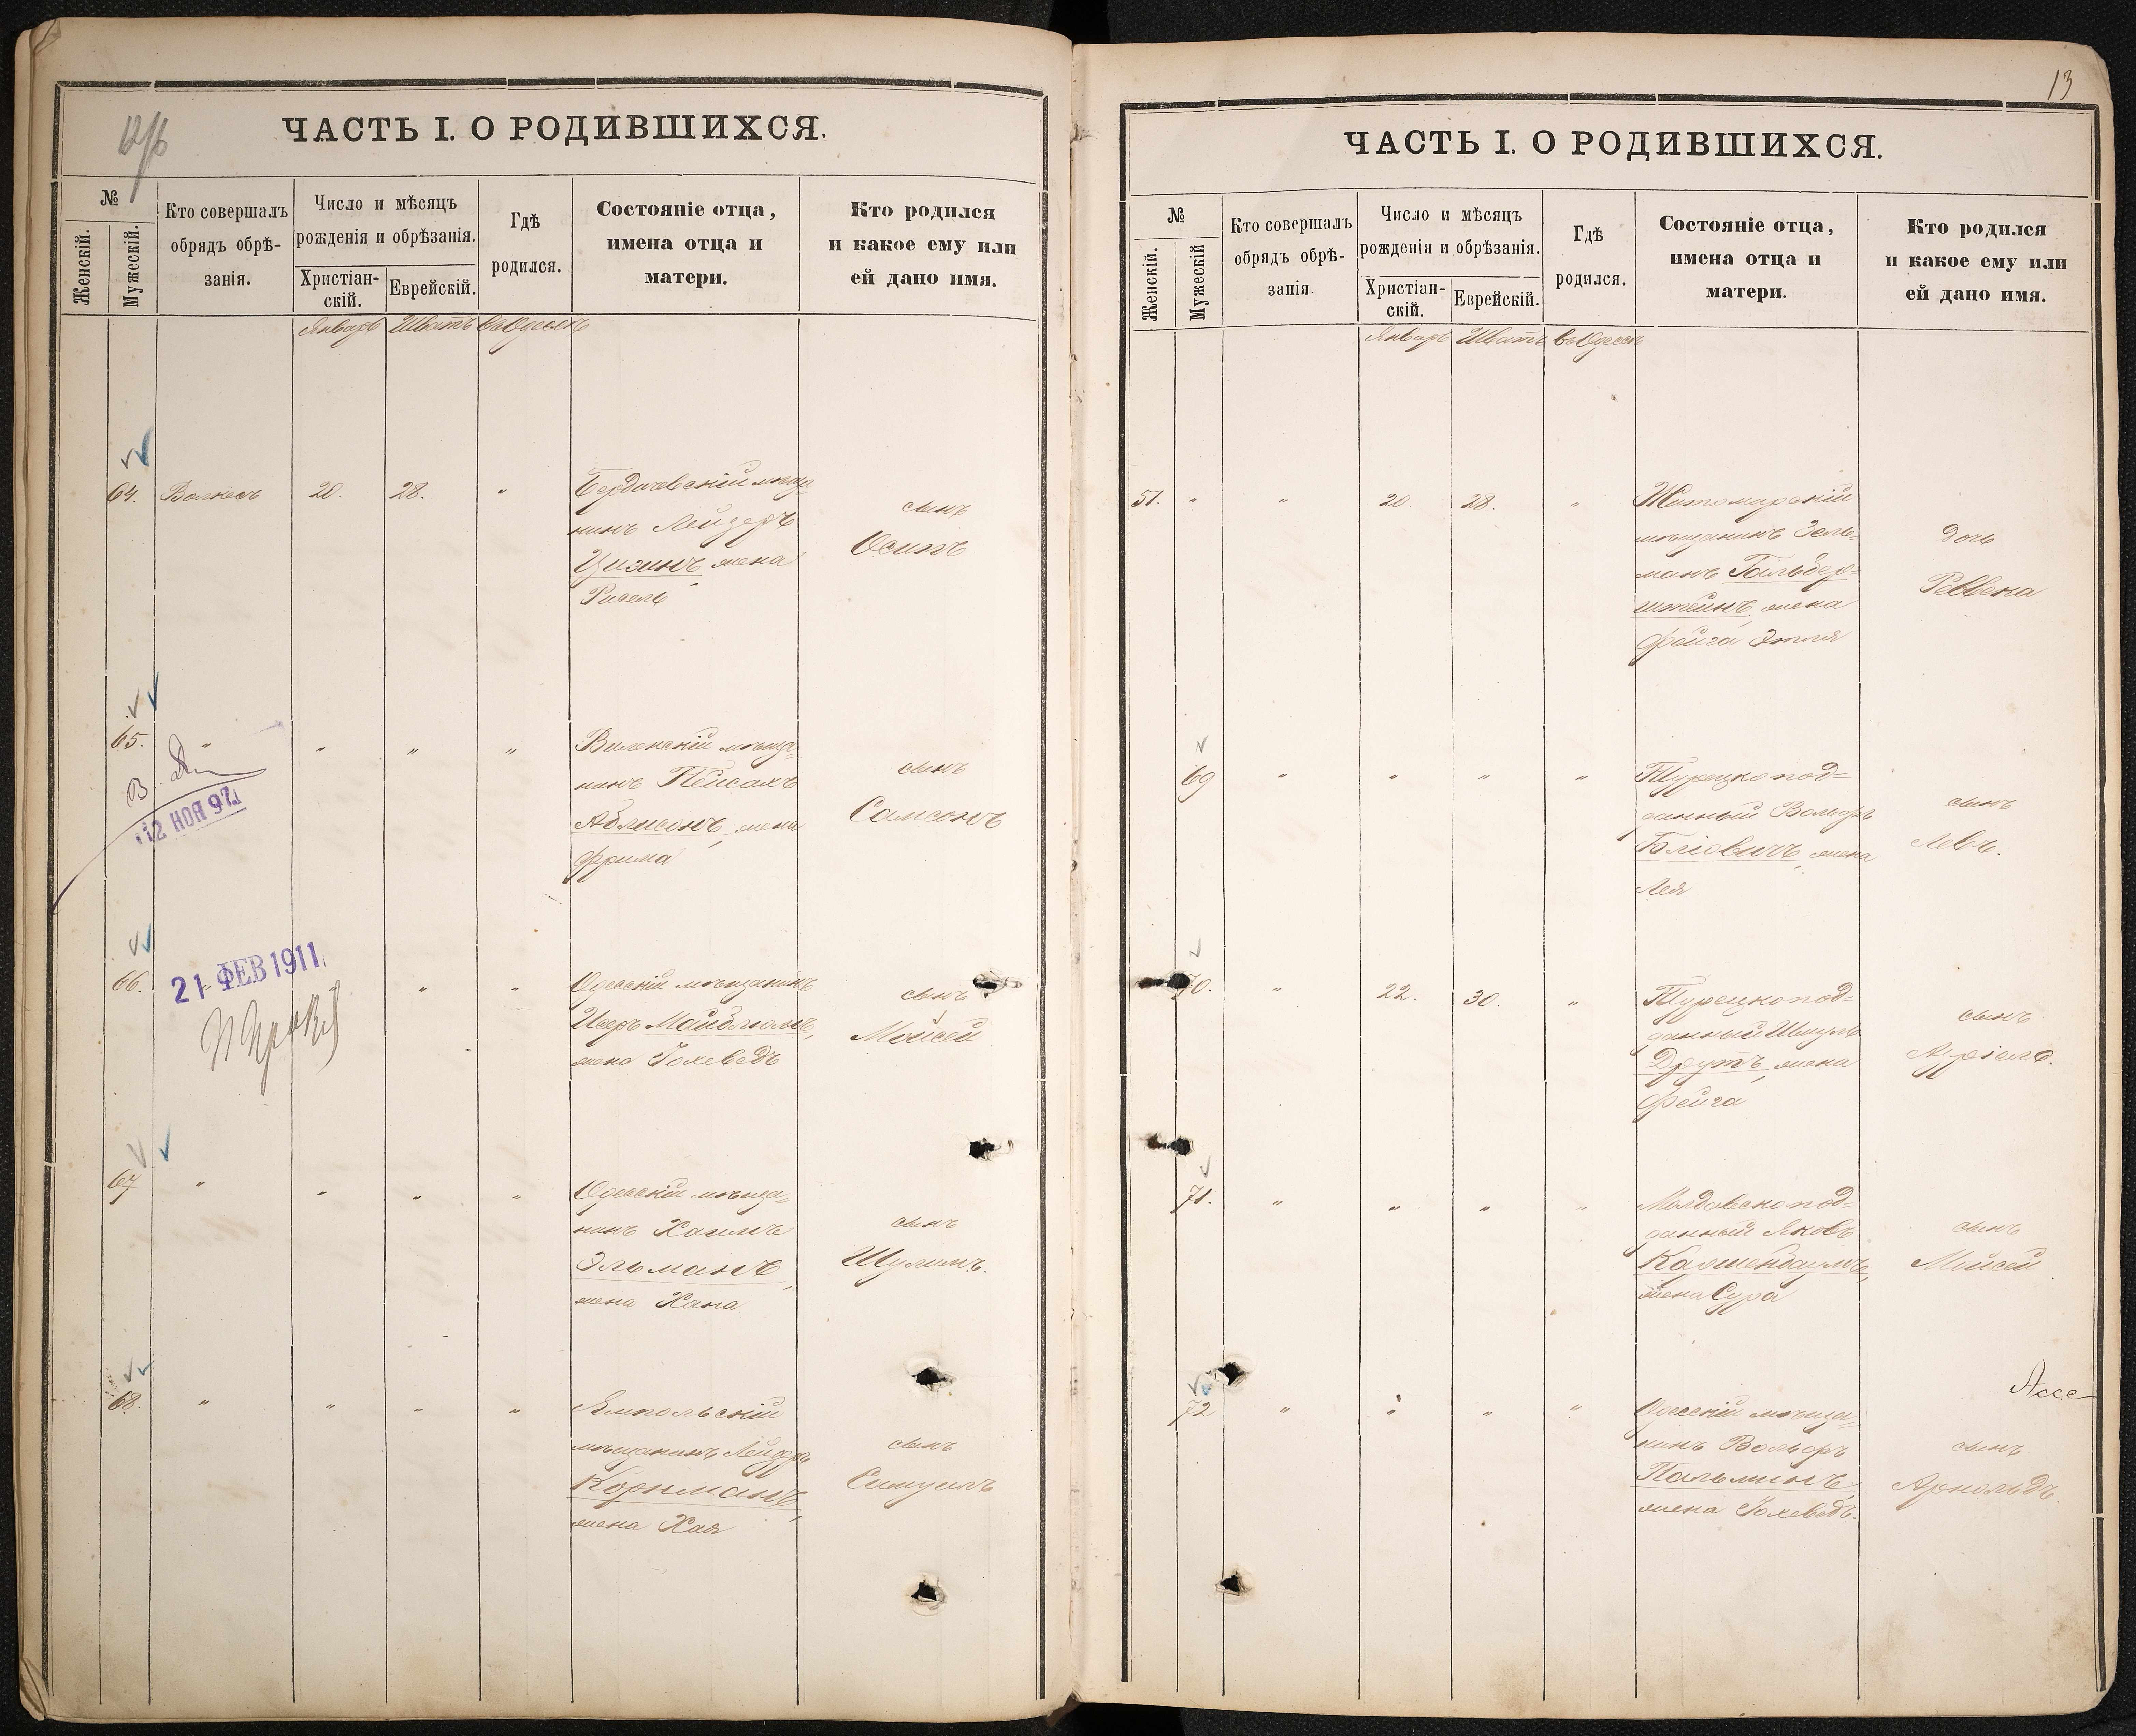 ЧАСТЬ I. О РОДИВШИХСЯ.
№
Женскій.
Мужескій.
Кто совершалъ
обрядъ обрѣ-
занія.
Число и мѣсяцъ
рожденія и обрѣзанія.
Христіан-
скій.
Еврейскій.
Гдѣ
родился.
Состояніе отца,
имена отца и
матери.
Кто родился
и какое ему или
ей дано имя.
Январь Шватъ въ Одессѣ
64. 20. 28. "
Бердичевскій мѣща-
нинъ Лейзеръ
жена
Рисель
сынъ
Осипъ
65. " " " "
Виленскій мѣща-
нинъ Пейсахъ
Аблисонъ, жена
Фрима
сынъ
Самсонъ
12 НОЯ 97
66. " "
21 ФЕВ 1911
Одесскій мѣщанинъ
жена Іохеведъ
сынъ
Мойсей
67 " " " "
Одесскій мѣща-
нинъ Хаимъ
Эльманъ,
жена Хана
сынъ
Шулимъ.
68. " " " "
Ямпольскій
мѣщанинъ Лейзеръ
Корнманъ,
жена Хая
сынъ
Самуилъ
13
ЧАСТЬ I. О РОДИВШИХСЯ.
№
Женскій.
Мужескій
Кто совершалъ
обрядъ обрѣ-
занія
Число и мѣсяцъ
рожденія и обрѣзанія.
Христіан-
скій.
Еврейскій.
Гдѣ
родился.
Состояніе отца,
имена отца и
матери.
Кто родился
и какое ему или
ей дано имя.
Январь Шватъ въ Одессѣ
51. " " 20 28. "
Житомирскій
мѣщанинъ Зель-
манъ Гальбер-
штейнъ, жена
Фейга Этля
дочь
Ревека
69 " " " "
Турецкопод-
данный Вольфъ
жена
Лея
сынъ
Левъ.
70. " 22. 30. "
Турецкопод-
данный Шмуль
Друтъ, жена
Фейга
сынъ
71. " " " "
Молдавскопод-
данный Яковъ
жена Сура
сынъ
Мойсей
72 " " " "
Одесскій мѣща-
нинъ Вольфъ
Пальминъ,
жена Іохеведъ.
сынъ
Арнольдъ.